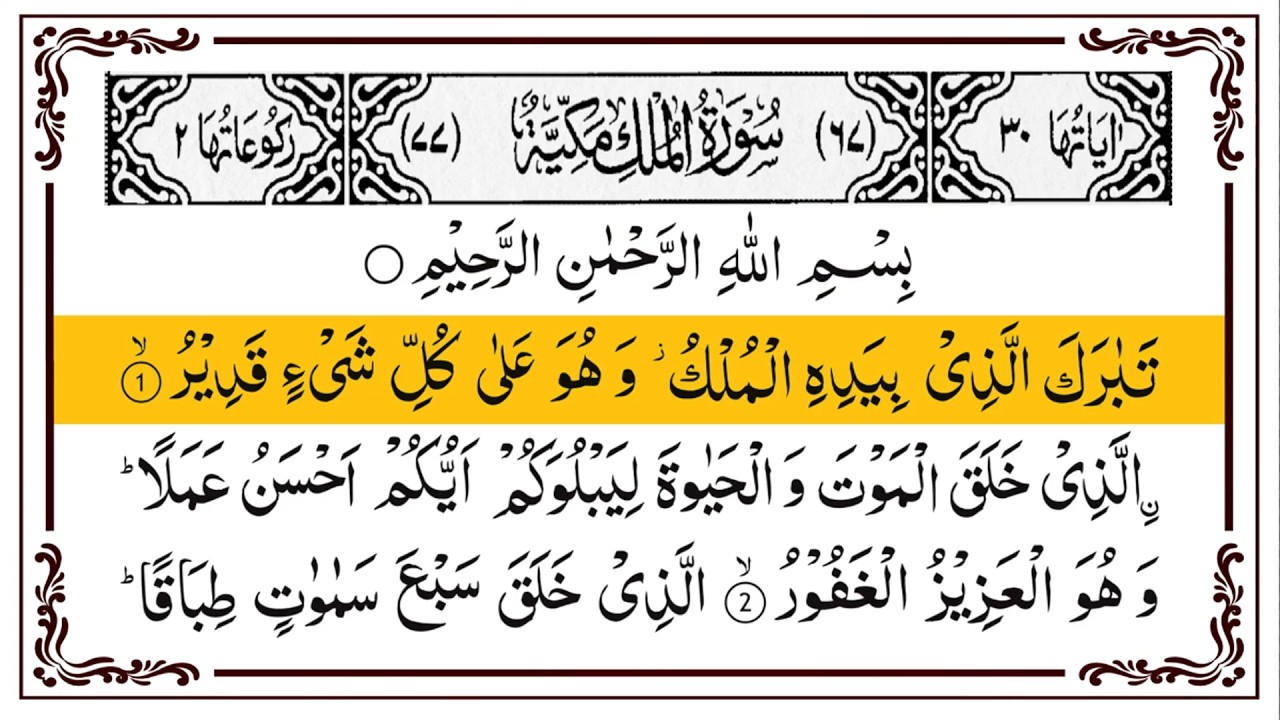 اٰيَاتُهَا ٣٠ (٦٧) سُوْرَةُ الْمُلْكِ مَكِّيَّةٌ (٧٧) رُكُوْعَاتُهَا ٢
بِسْمِ اللّٰهِ الرَّحْمٰنِ الرَّحِيْمِ ○
تَبٰرَكَ الَّذِیْ بِیَدِهِ الْمُلْكُ ؗ وَ هُوَ عَلٰى كُلِّ شَیْءٍ قَدِیْرُ ۙ ①
نِ ۟الَّذِیْ خَلَقَ الْمَوْتَ وَ الْحَیٰوةَ لِیَبْلُوَكُمْ اَیُّكُمْ اَحْسَنُ عَمَلًا ؕ
وَ هُوَ الْعَزِیْزُ الْغَفُوْرُ ۙ ② الَّذِیْ خَلَقَ سَبْعَ سَمٰوٰتٍ طِبَاقًا ؕ